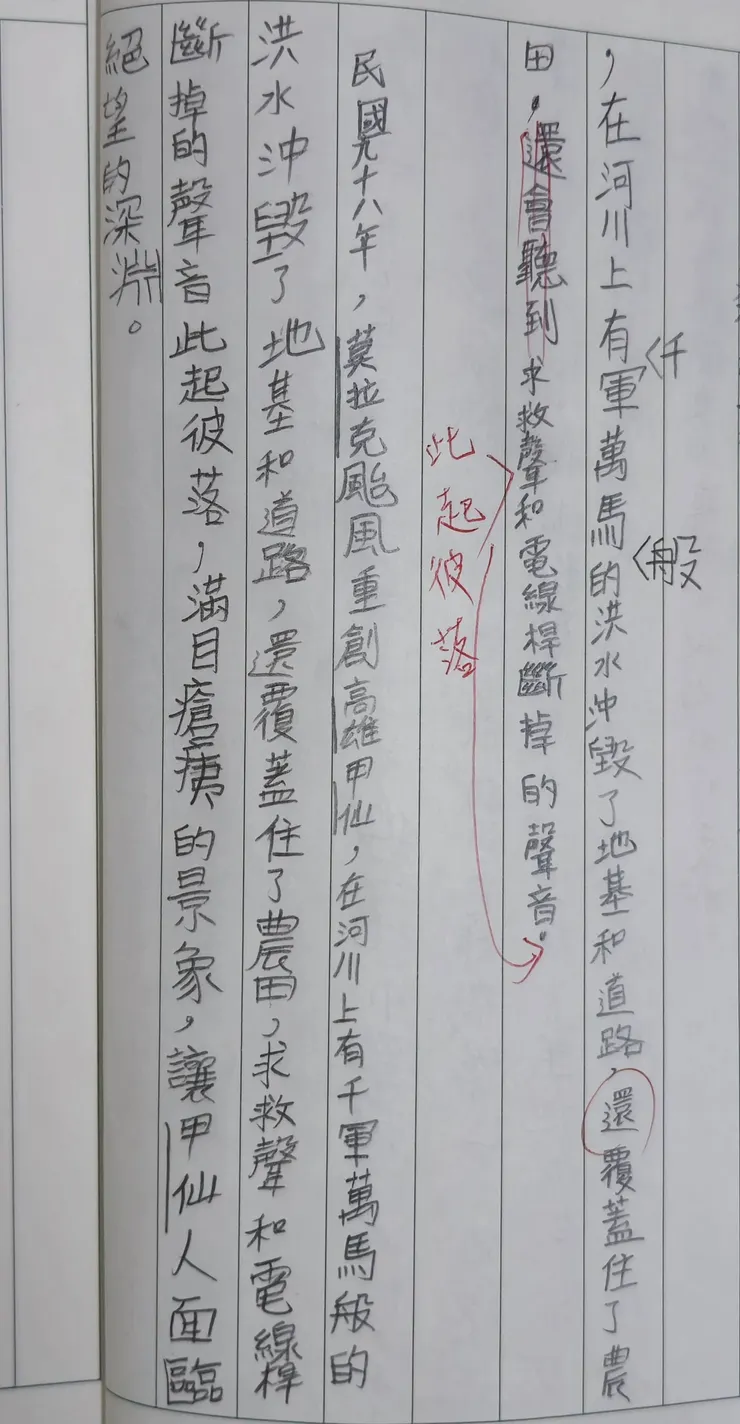 ，在河川上有軍萬馬的洪水沖毀了地基和道路，還覆蓋住了農
千
般
田，還會聽到求救聲和電線桿斷掉的聲音。
此起彼落
民國九十八年，莫拉克颱風重創高雄甲仙，在河川上有千軍萬馬般的
洪水沖毀了地基和道路，還覆蓋住了農田，求救聲和電線桿
斷掉的聲音此起彼落，滿目瘡痍的景象，讓甲仙人面臨
絕望的深淵。